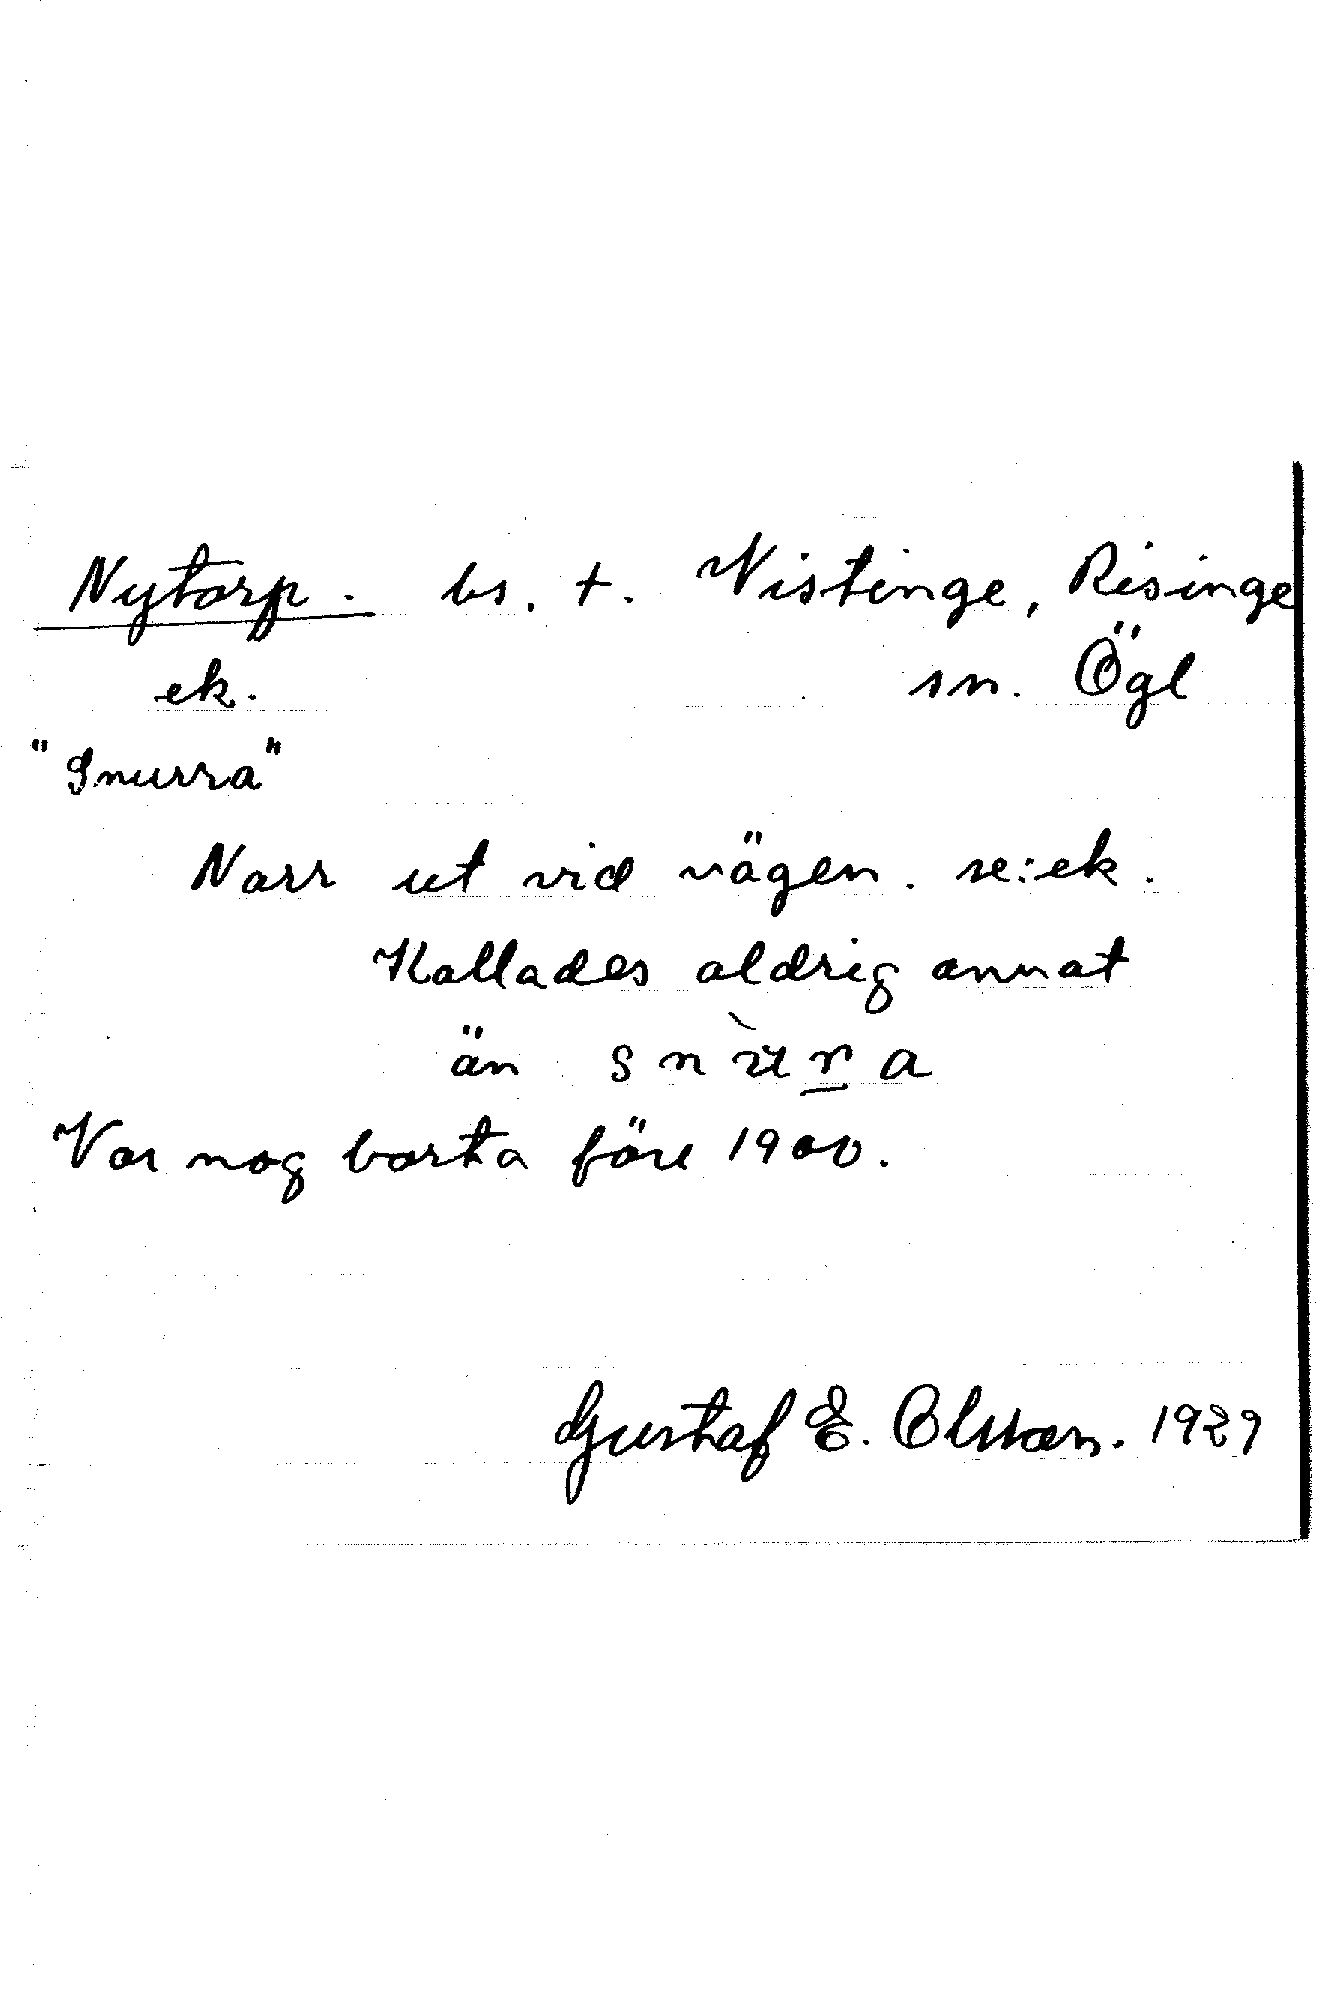 Nytorp. bs. t. Vistinge, Risinge
ek. sn. Ögl
"Snurra"
Norr ut vid vägen. se: ek.
Kallades aldrig annat
än snùra
Var nog borta före 1900.
Gustaf E. Olsson. 1929